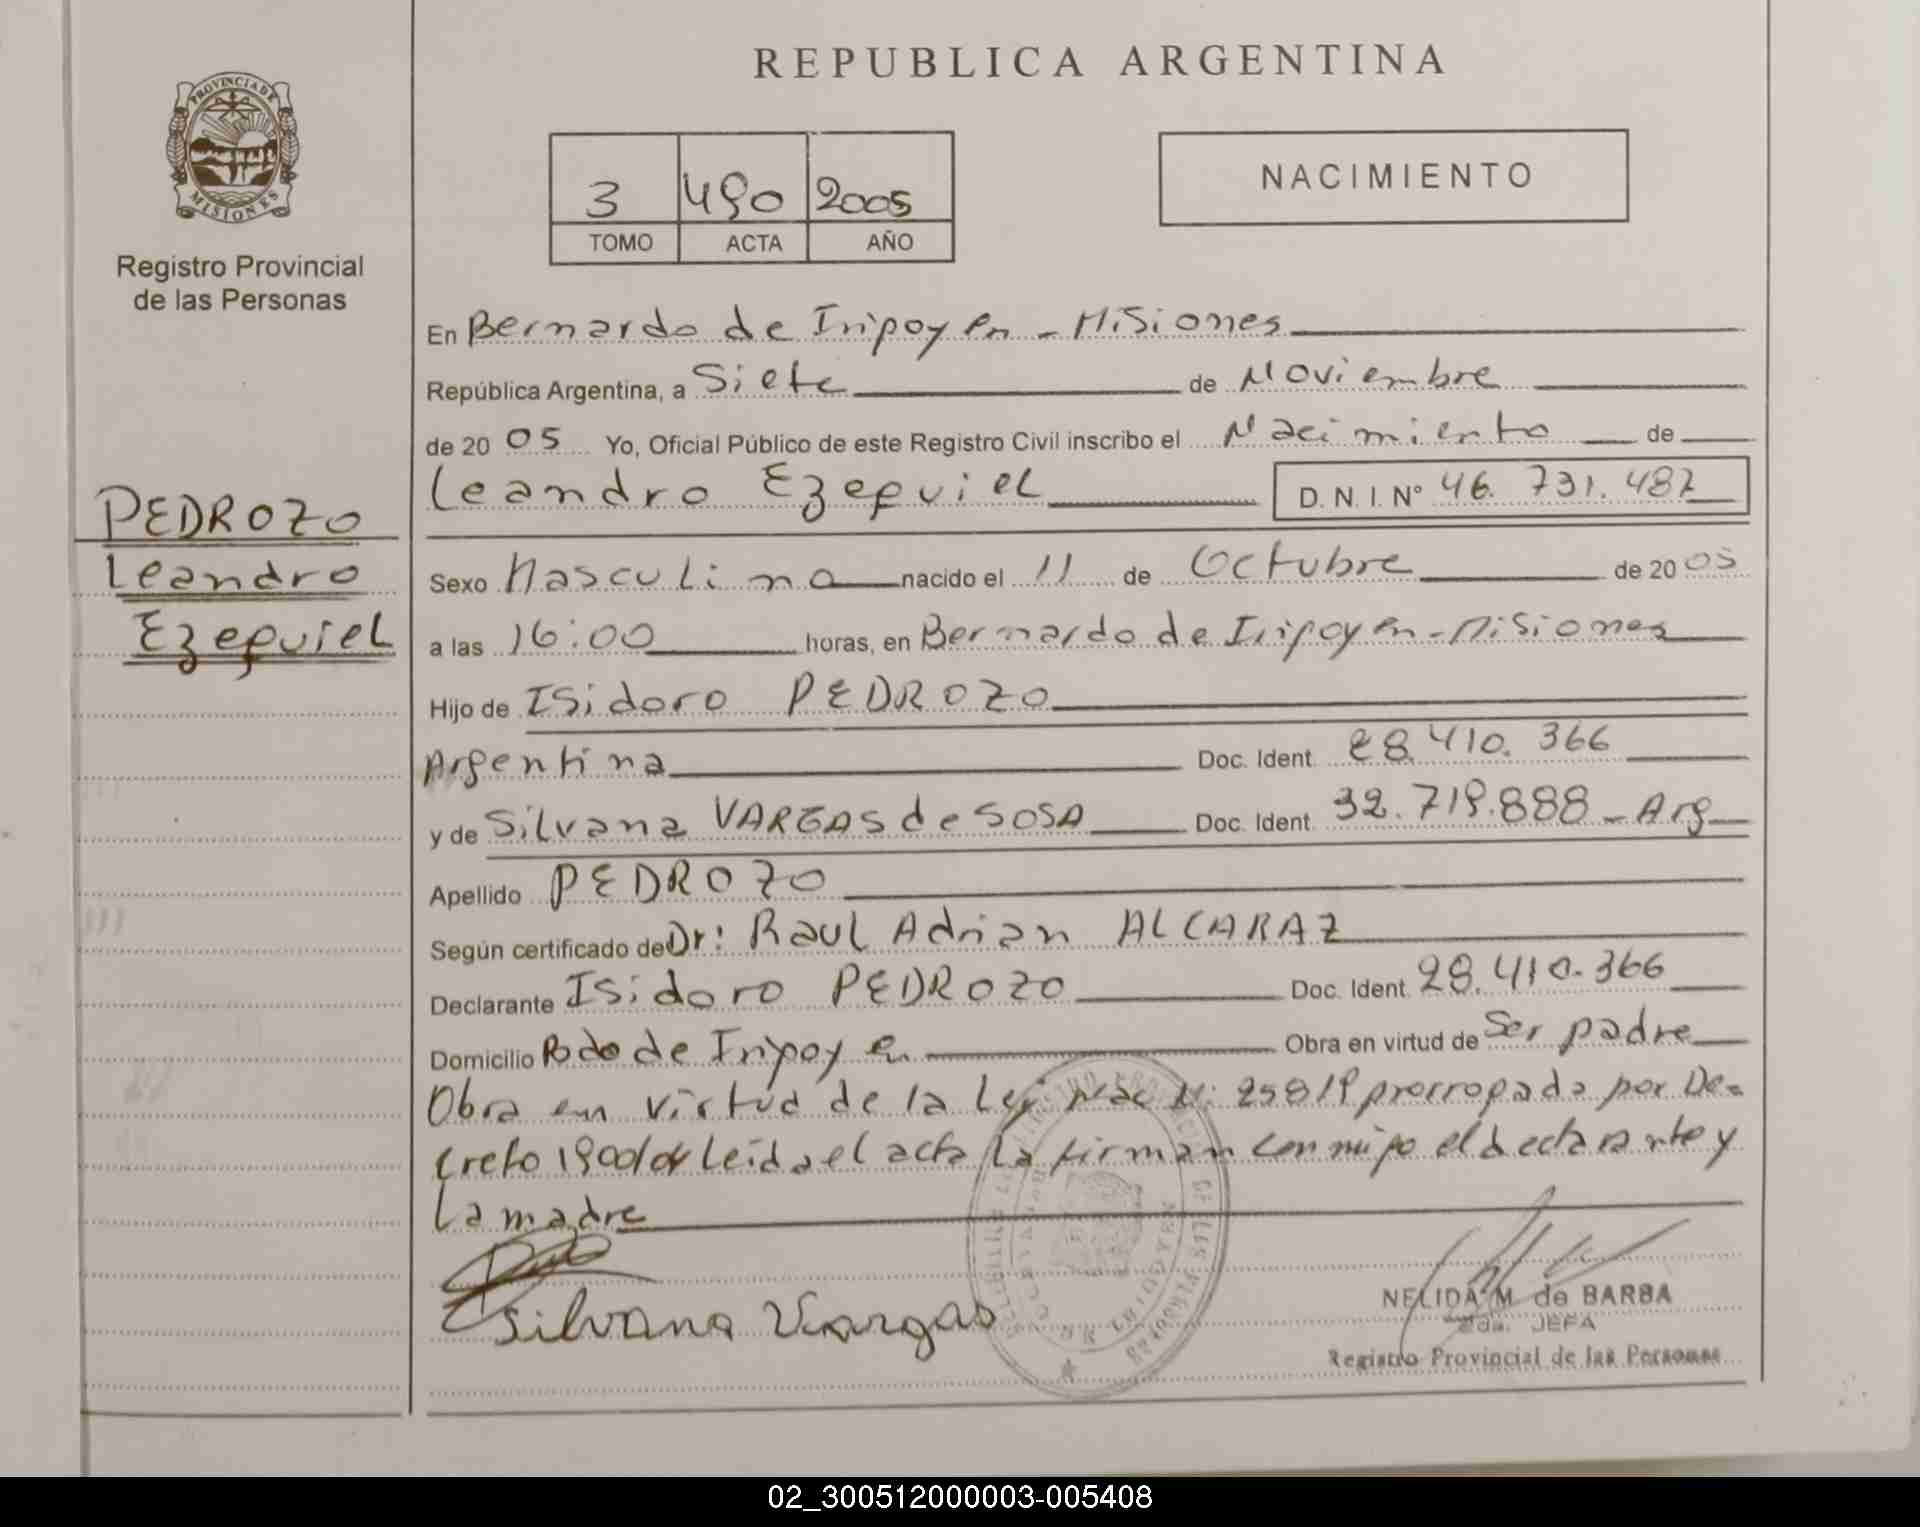 REPUBLICA ARGENTINA
PROVINCIA DE
MISIONES
Registro Provincial
de las Personas
3 490 2005
TOMO ACTA AÑO
NACIMIENTO
En Bernardo de Irigoyen - Misiones
República Argentina, a Siete de Noviembre
de 2005 Yo, Oficial Público de este Registro Civil inscribo el Nacimiento de
Leandro Ezequiel D. N. I. N° 46. 731. 487
PEDROZO
Leandro
Ezequiel
Sexo Masculino nacido el 11 de Octubre de 2005
a las 16:00 horas, en Bernardo de Irigoyen - Misiones
Hijo de Isidoro PEDROZO
Argentina Doc. Ident. 28.410.366
y de Silvana VARGAS de SOSA Doc. Ident. 32.719.888 - Arg
Apellido PEDROZO
Según certificado de Dr: Raul Adrian ALCARAZ
Declarante Isidoro PEDROZO Doc. Ident. 28.410.366
Domicilio Bdo de Irigoyen Obra en virtud de Ser padre
Obra en virtud de la Ley Nac N: 25819 prorrogada por De-
creto 1900/04 Leida el acta La firman conmigo el declarante y
La madre
Silvana Vargas
NELIDA M. de BARBA
JEFA
Registro Provincial de las Personas
02_300512000003-005408